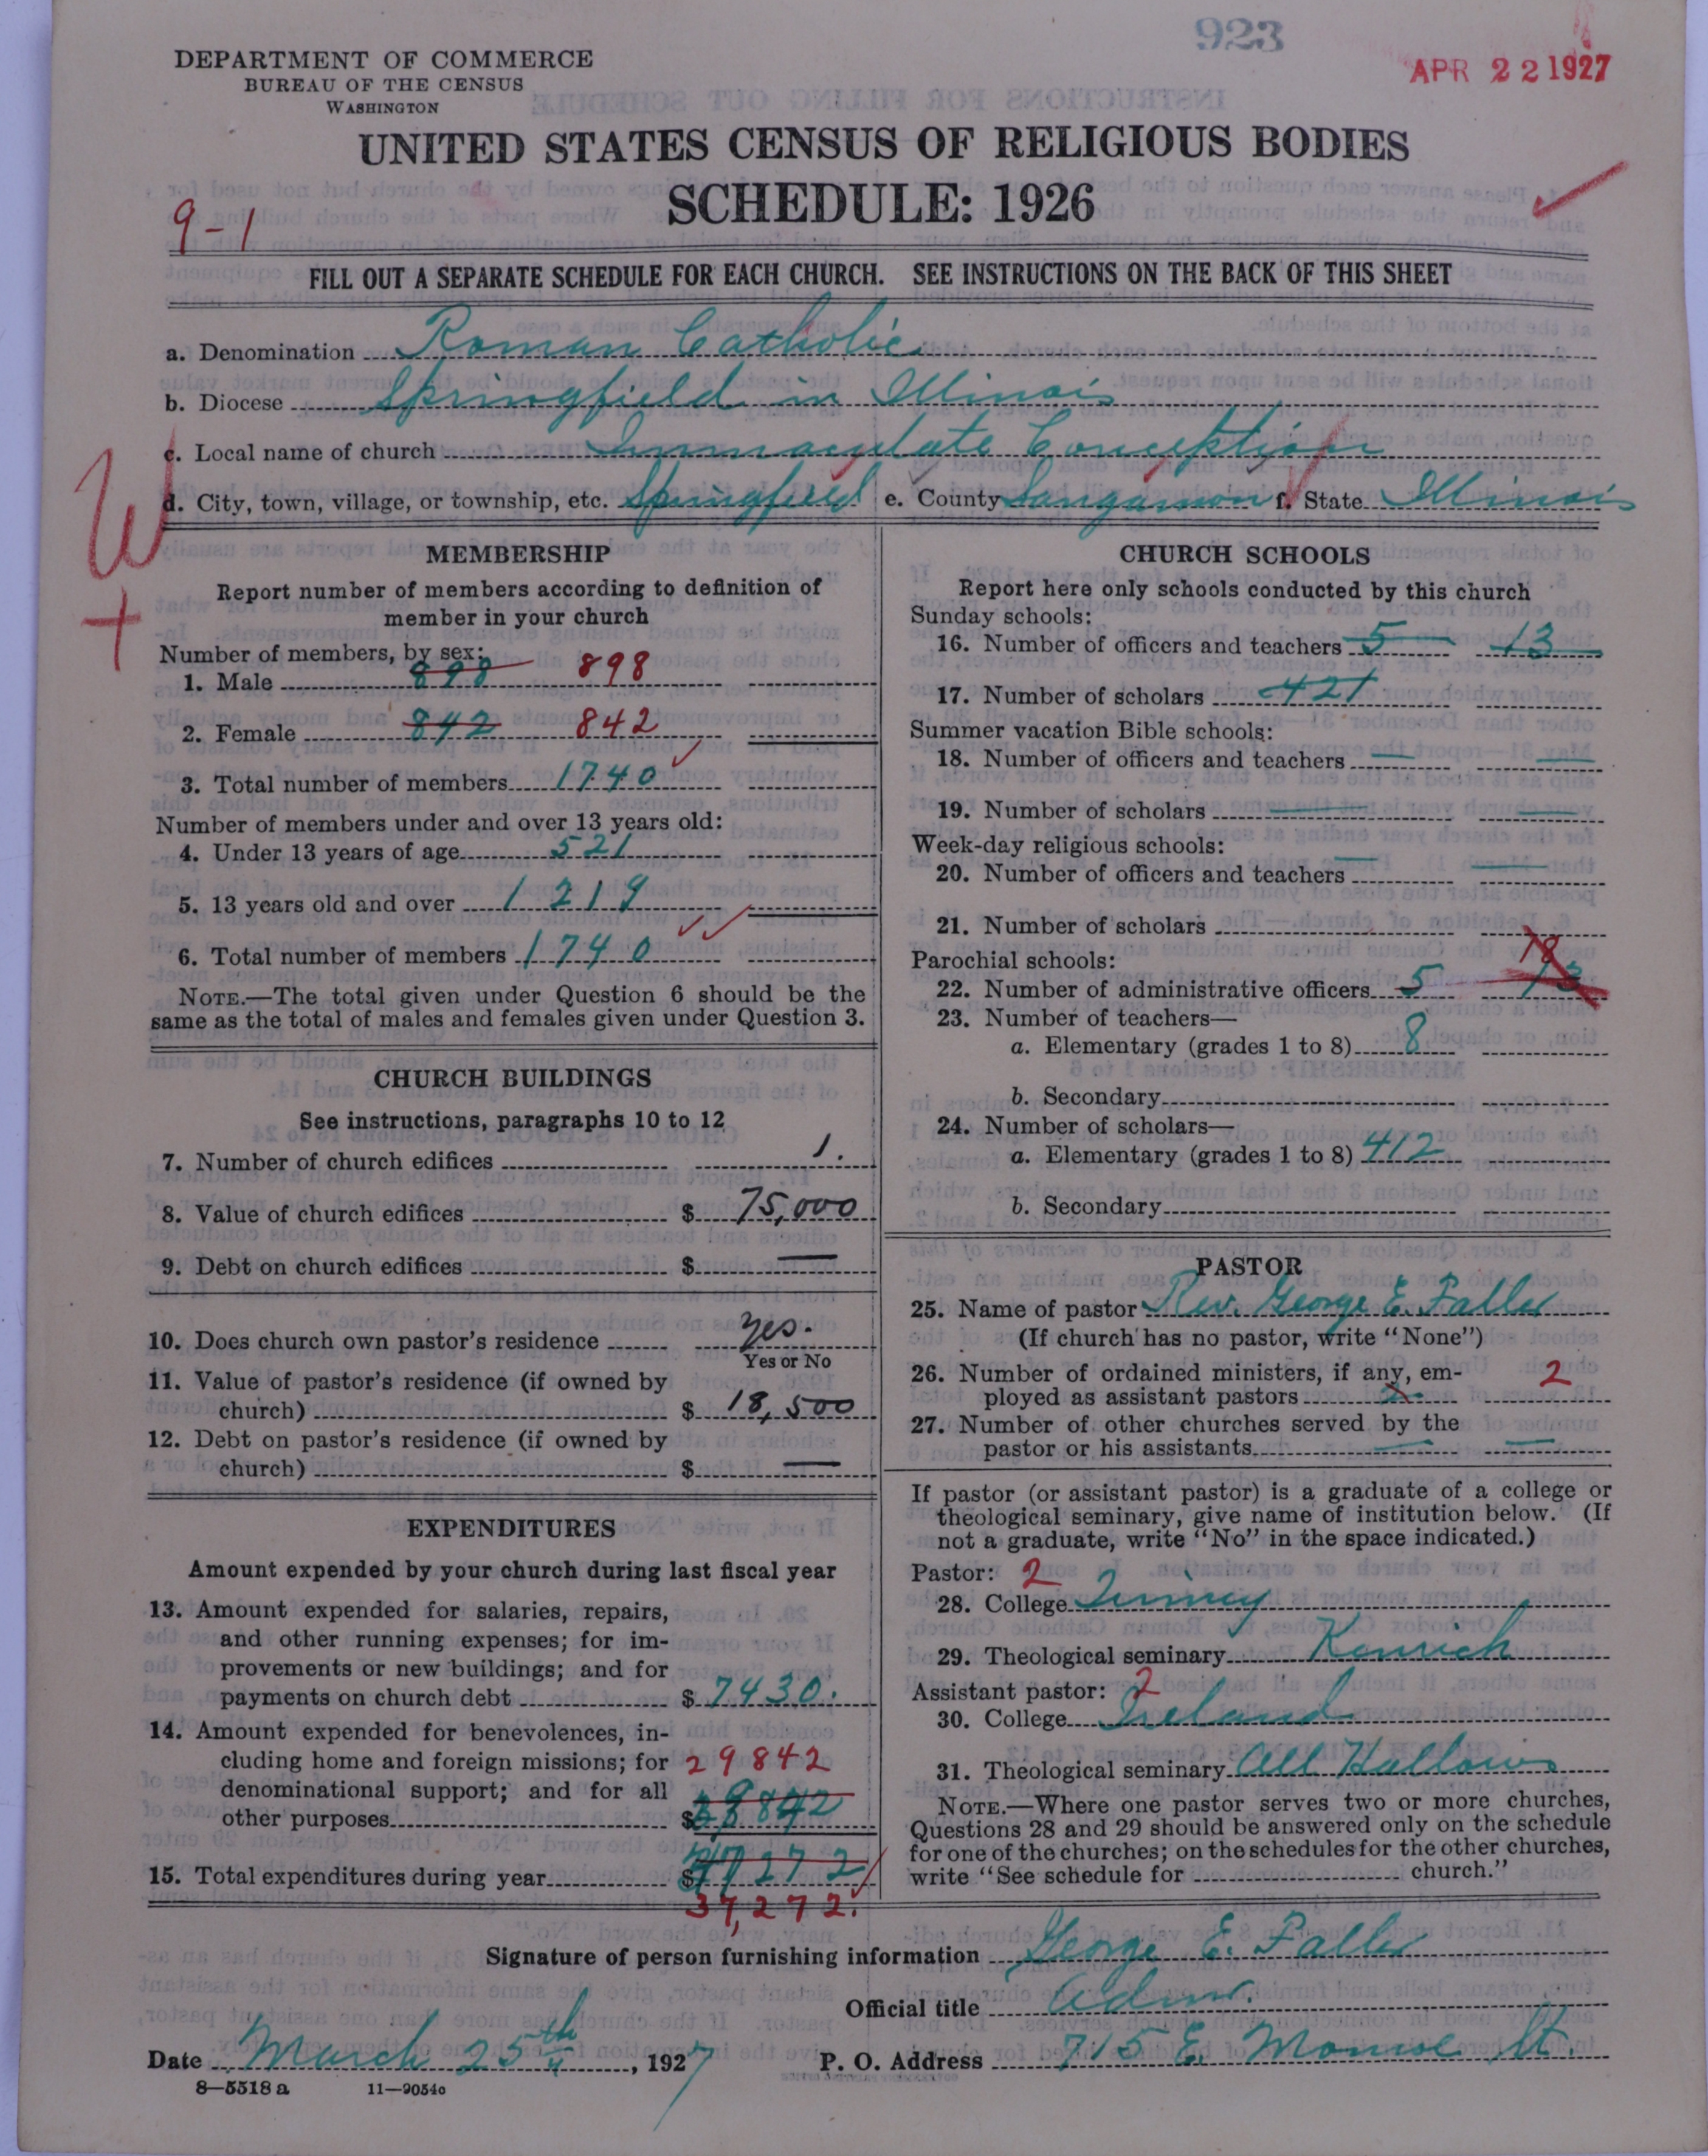 923
APR 22 1927
DEPARTMENT OF COMMERCE
BUREAU OF THE CENSUS
WASHINGTON
UNITED STATES CENSUS OF RELIGIOUS BODIES
SCHEDULE: 1926
9-1
FILL OUT A SEPARATE SCHEDULE FOR EACH CHURCH. SEE INSTRUCTIONS ON THE BACK OF THIS SHEET
a. Denomination Roman Catholic
b. Diocese Springfield in Illinois
c. Local name of church Immaculate Conception
d. City, town, village, or township, etc. Springfield e. County Sangamon f. State Illinois
W
+
MEMBERSHIP
Report number of members according to definition of
member in your church
Number of members, by sex:
1. Male 898 898
2. Female 842 842
3. Total number of members 1740
Number of members under and over 13 years old:
4. Under 13 years of age 521
5. 13 years old and over 1219
6. Total number of members 1740
NOTE.—The total given under Question 6 should be the
same as the total of males and females given under Question 3.
CHURCH BUILDINGS
See instructions, paragraphs 10 to 12
7. Number of church edifices 1.
8. Value of church edifices $ 75,000
9. Debt on church edifices $ —
10. Does church own pastor's residence Yes.
Yes or No
11. Value of pastor's residence (if owned by
church) $ 18,500
12. Debt on pastor's residence (if owned by
church) $ —
EXPENDITURES
Amount expended by your church during last fiscal year
13. Amount expended for salaries, repairs,
and other running expenses; for im-
provements or new buildings; and for
payments on church debt $ 7430.
14. Amount expended for benevolences, in-
cluding home and foreign missions; for 29842
denominational support; and for all
other purposes $ 842
15. Total expenditures during year $ 7272
37,272.
CHURCH SCHOOLS
Report here only schools conducted by this church
Sunday schools:
16. Number of officers and teachers 5 13
17. Number of scholars 421
Summer vacation Bible schools:
18. Number of officers and teachers — —
19. Number of scholars — —
Week-day religious schools:
20. Number of officers and teachers — —
21. Number of scholars
Parochial schools:
22. Number of administrative officers 5 13
23. Number of teachers—
a. Elementary (grades 1 to 8) 8
b. Secondary
24. Number of scholars—
a. Elementary (grades 1 to 8) 412
b. Secondary
PASTOR
25. Name of pastor Rev. George E. Faller
(If church has no pastor, write "None")
26. Number of ordained ministers, if any, em- 2
ployed as assistant pastors
27. Number of other churches served by the
pastor or his assistants — —
If pastor (or assistant pastor) is a graduate of a college or
theological seminary, give name of institution below. (If
not a graduate, write "No" in the space indicated.)
Pastor: 2
28. College Quincy
29. Theological seminary Kenrick
Assistant pastor: 2
30. College Ireland
31. Theological seminary All Hallows
NOTE.—Where one pastor serves two or more churches,
Questions 28 and 29 should be answered only on the schedule
for one of the churches; on the schedules for the other churches,
write "See schedule for church."
Signature of person furnishing information George E. Faller
Official title Adm.
Date March 25th, 1927 P. O. Address 715 E. Monroe St.
8—5518 a 11—9054c